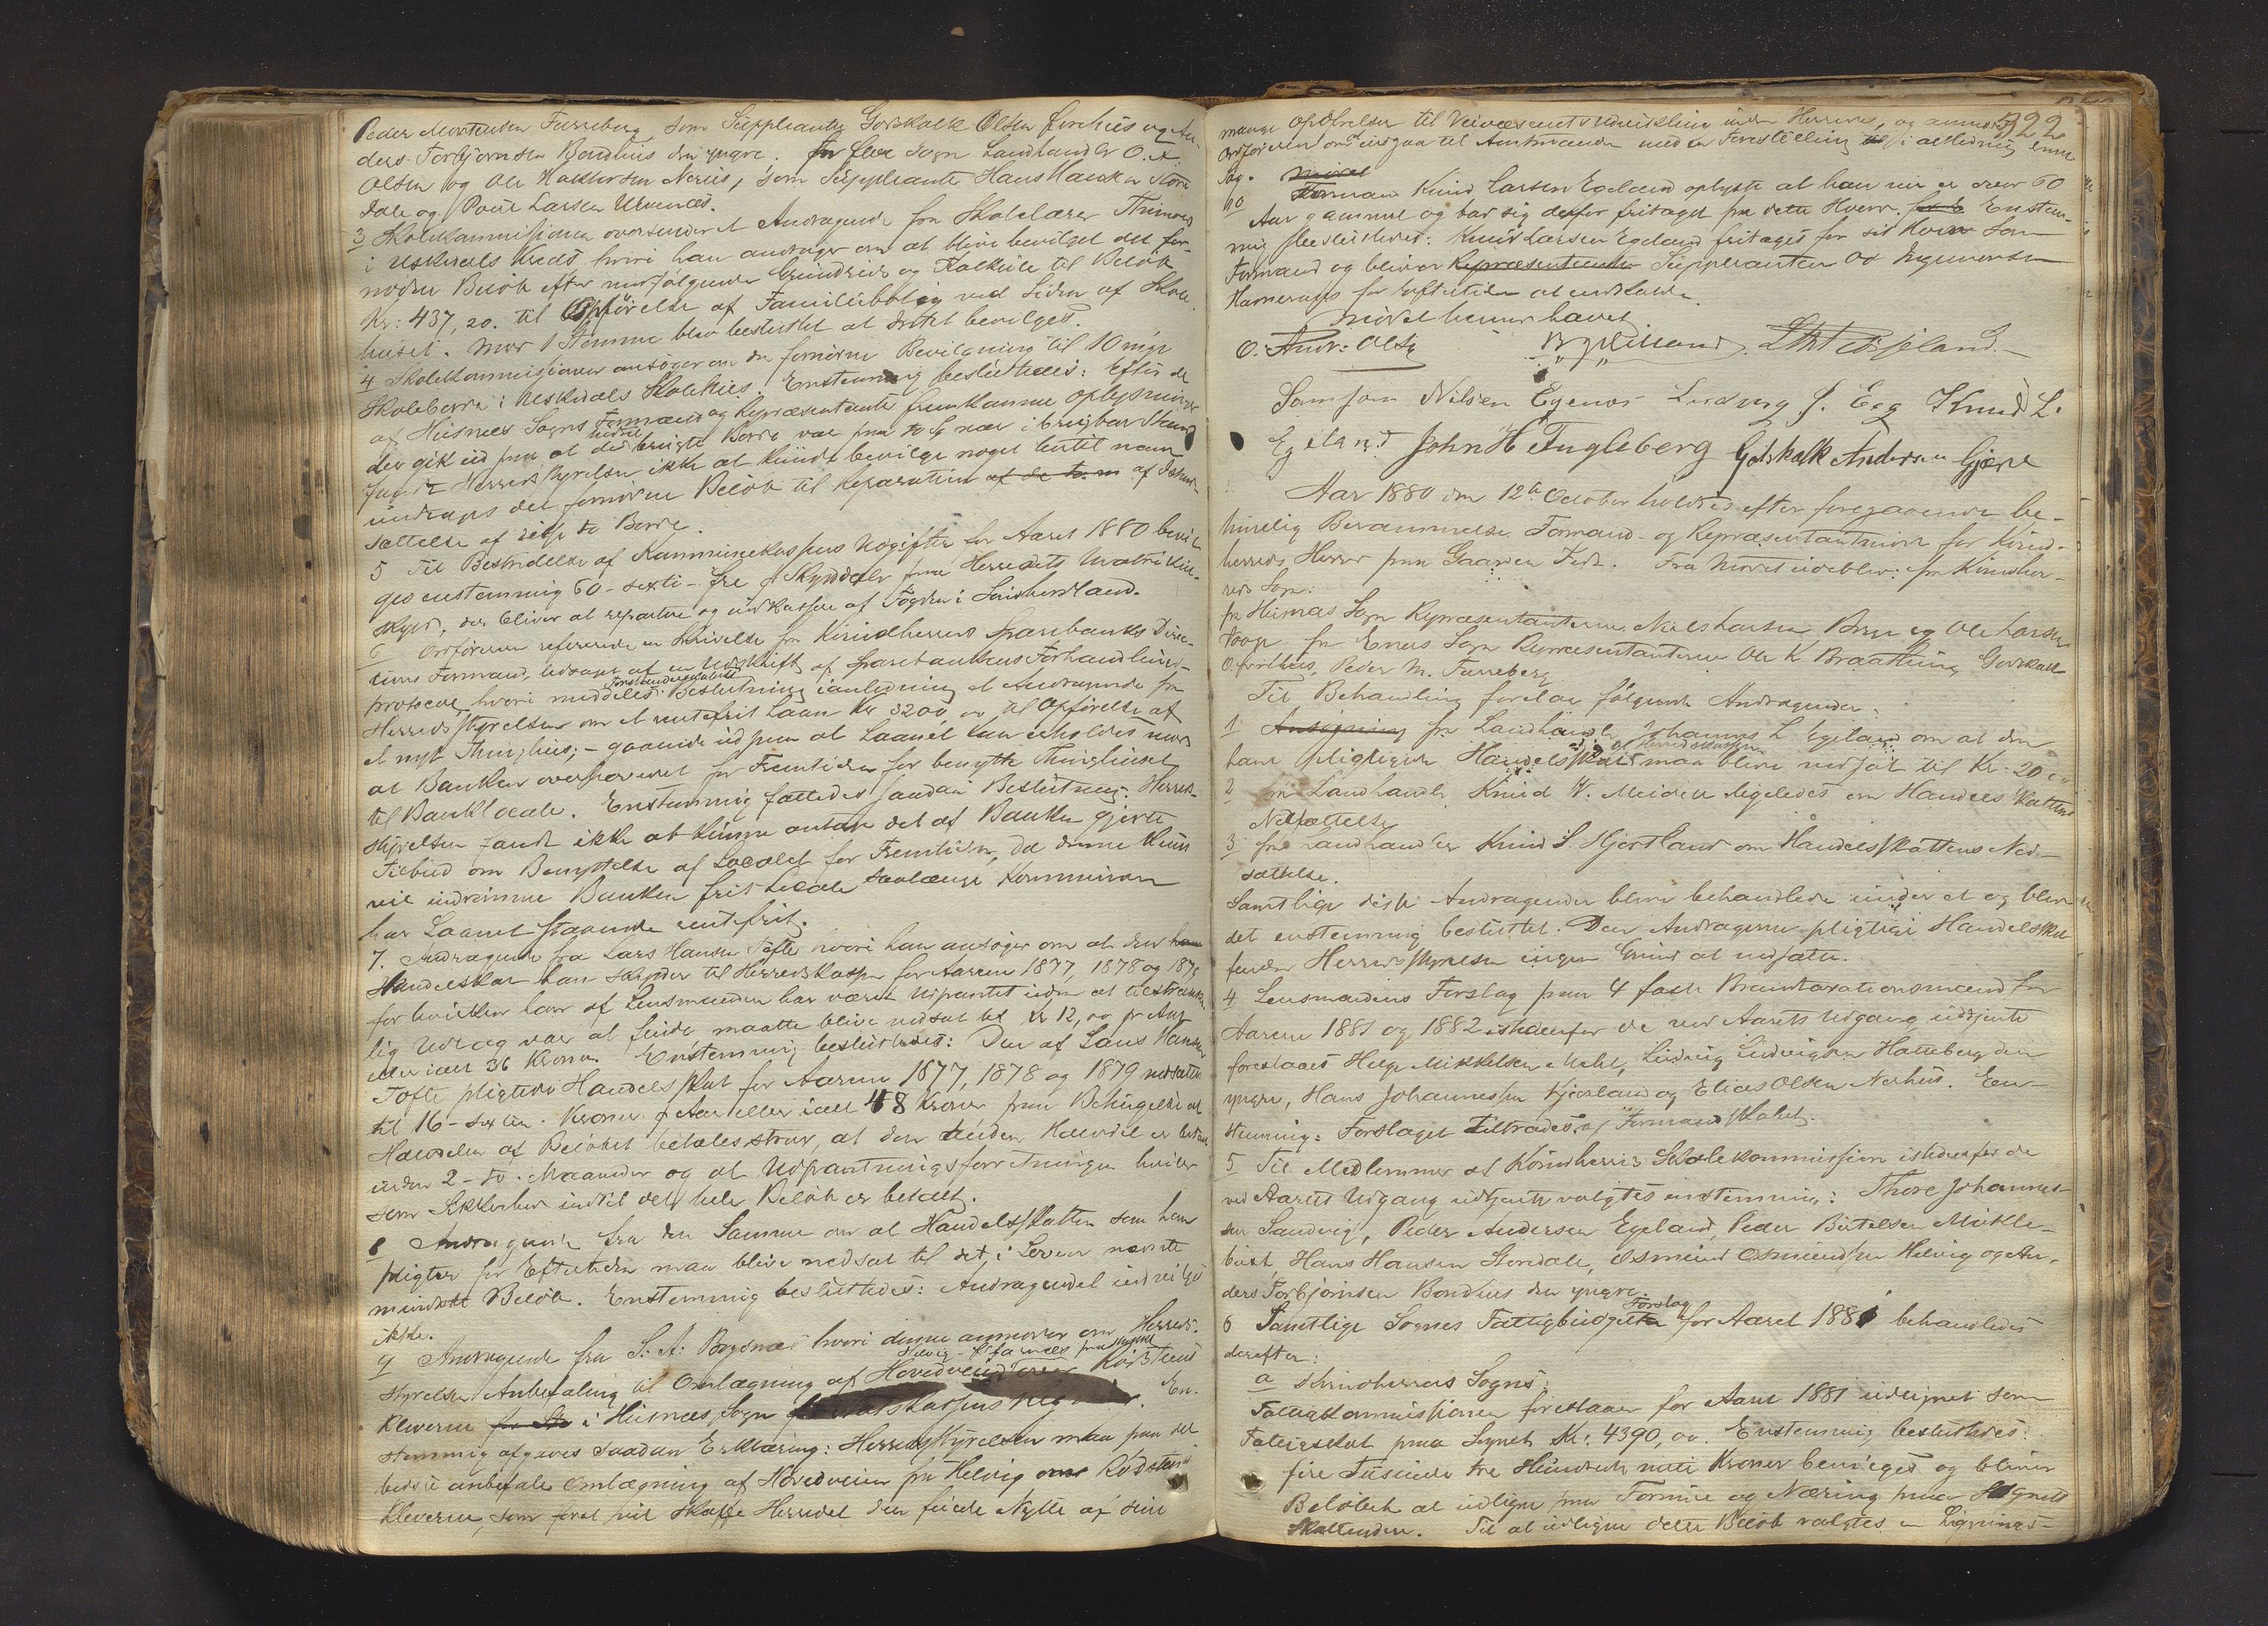 Peder Mortensen Furreberg, som Suppleanter Godskalk Olsen forhus og An-
ders Torbjørnsen Bondhus den yngre. For Sogn Landhandler O. A.
Olsen og Ole Haktorsen Neriis, som Suppleanter Hans Hauken Store
dale og Poul Larsen Utvenes.
3 Skolekommissionen oversender et Andragende fra Skolelærer
i Uskedals Kreds hvori han andrager om at blive bevilget det for-
nødne Beløb efter medfølgende Grundrids og Kalkule til Beløb
Kr: 437,20. til Opførelse af Familiebolig ved Siden af Skole
huset. Mod 1 Stemme blev besluttet at Intet bevilges.
4 Skolekommissionen ansøger om den fornødne Bevilgning til 10 nye
Skoleborde i Uskedals Skolehus. Enstemmig besluttedes: Efter de
af Husnes Sogns Formænd og Repræsentanter fremkomne oplysninger
der gik ud paa at de hidtil brugte Borde var paa to nær i brugbar Stand
fandt Herredsstyrelsen ikke at kunde bevilge noget hertil men
inddrages det fornødne Beløb til Reparation af de to af Istand-
sættelse af disse to Borde.
5 Til Bestridelse af Kommunekassens Udgifter for Aaret 1880 bevil
ges enstemmig 60 - sexti - Øre pr Skylddaler paa Herredets Matrikul-
skyld, der bliver at repartere og indkassere af Fogden i Søndhordland.
6 Ordføreren refererede en Skrivelse fra Kvindherreds Sparebanks Direc-
tions Formand, ledsaget af en Udskrift af Sparebankens Forhandlings-
protocol, hvori meddeles Forstanderskabets Beslutning i anledning et Andragende fra
Herredsstyrelsen om et rentefrit Laan Kr 3200 00 til Opførelse af
et nyt Thinghus; - gaaende ud paa at Laanet kan erholdes mod
at Banken overladeret for Fremtiden for benytte Thinghuset
til Banklocale. Enstemmig fattedes saadan Beslutning: Herreds-
styrelsen fandt ikke at kunne antage det af Banken gjorte
Tilbud om Benyttelse af Localet for Fremtiden, da denne kun
vil indrømme Banken frit Locale saalænge Kommunen
har Laanet staaende rentefrit.
7. Andragende fra Lars Hansen Tofte hvori han ansøger om at den
Handelsskat han skylder til Herredskassen for Aarene 1877, 1878 og 1879
for hvilken han af Lensmanden har været Udpantet uden at tilstrække-
lig Udlæg var at finde maatte blive nedsat til Kr 12,00 pr Aar
eller ialt 36 Kroner. Enstemmig besluttedes: Den af Lars Hansen
Tofte pligtede Handelsskat for Aarene 1877, 1878 og 1879 nedsættes
til 16 - sexten - Kroner pr Aar eller ialt 48 Kroner paa Betingelse at
Halvdelen af Beløbet betales strax, at den anden Halvdel er betalt
inden 2 - to - Maaneder og at Udpantningsforretningen hviler
som Sikkerhed indtil det hele Beløb er betalt.
8 Andragende fra den Samme om at Handelsskatten som han
pligter for Eftertiden maa blive nedsat til det i Loven nævnte
mindste Beløb. Enstemmig besluttedes: Andragendet indvilges
ikke.
9 Andragende fra S. A. Bogsnæs hvori denne anmoder om Herreds-
styrelsens Anbefaling til Omlægning af Hovedveien Rødsteens
Kleverne i Husnæs Sogn En-
stemmig afgaves saadan Erklæring: Herredsstyrelsen maa paa det
bedste anbefale Omlægning af Hovedveien fra Helvig over Rødsteens
Kleverne, som først vil skaffe Herredet den fulde Nytte af sine
322
mange opofrelser til Veivæsenets udvikling inden Herredet, og anmodes
Ordføreren om at indgaa til Amtmanden med en Forestilling i anledning denne
Sag.
10 Formand Knud Larsen Egeland oplyste at han nu er over 60
Aar gammel og bad sig derfor fritaget fra dette Hverv. Enstem-
mig besluttedes: Knud Larsen Egeland fritages for sit Hverv som
Formand og bliver Suppleanten Od Ingemundsen
Hamerangs for Eftertiden at indkalde.
Mødet hermed hævet
O. Andr: Olsen
Samson Nilsen Egenes Ludvig J. Eeg Knud L.
Egelant John H Fugleberg Godskalk Andersen Gjerde
Aar 1880 den 12te October holdtes efter foregaaende be-
hørelig Berammelse Formand- og Repræsentantmøde for Kvind-
herreds Herred paa Gaarden Fet. Fra Mødet udeblev: fra Kvindher-
reds Sogn:
fra Husnæs Sogn Repræsentanterne Nils Larsen Berge og Ole Larsen
Hoge fra Enæs Sogn Repræsentanterne Ole K. Braathun, Godskalk
O. forthus, Peder M. Furreberg
Til Behandling forelaa følgende Andragender
1 Ansøgning fra Landhandler Johannes L Egeland om at den
ham pligtigede Handelsskat til Herredskassen maa blive nedsat til Kr. 20 00
2 fra Landhandler Knud W. Meidell ligeledes om Handels Skattens
Nedsættelse
3 fra Landhandler Knud S Hjertland om Handelsskattens Ned-
sættelse.
Samtlige disse Andragender bleve behandlede under et og blev
det enstemmig besluttet: Den Andragerne pligtige Handelsskat
fandt Herredsstyrelsen ingen Grund at nedsætte.
4 Lensmandens Forslag paa 4 faste Brandtaxationsmænd for
Aarene 1881 og 1882 istedenfor de ved Aarets Udgang udtjente
foreslaaes Helge Mikkelsen Mehl, Ludvig Ludvigsen Hatteberg den
yngre, Hans Johannessen Kjærland og Elias Olsen Nerhus. Een-
stemmig: Forslaget tiltrædes af Formandskabet.
5 Til Medlemmer af Kvindherreds Skolekommission istedenfor de
ved Aarets Udgang udtjente valgtes enstemmig: Thore Johannes-
sen Sandvig, Peder Andersen Egeland, Peder Bertelsen Møkle-
bust, Hans Hansen Stordale, Osmund Osmundsen Helvig og An-
ders Torbjørnsen Bondhus den yngre.
6 Samtlige Sognes Fattigbudgetter Forslag for Aaret 1881 behandledes
derefter:
a Kvindherreds Sogns:
Fattigkommissionen foreslaaer for Aaret 1881 udlignet som
Fattigskat paa Sognet Kr. 4390,00. Enstemmig besluttedes:
fire Tusinde tre Hundrede niti Kroner bevilges og bliver
Beløbet at udligne paa Formue og Næring paa Sognets
Skatteydere. Til at udligne dette Beløb valgtes en Lignings-